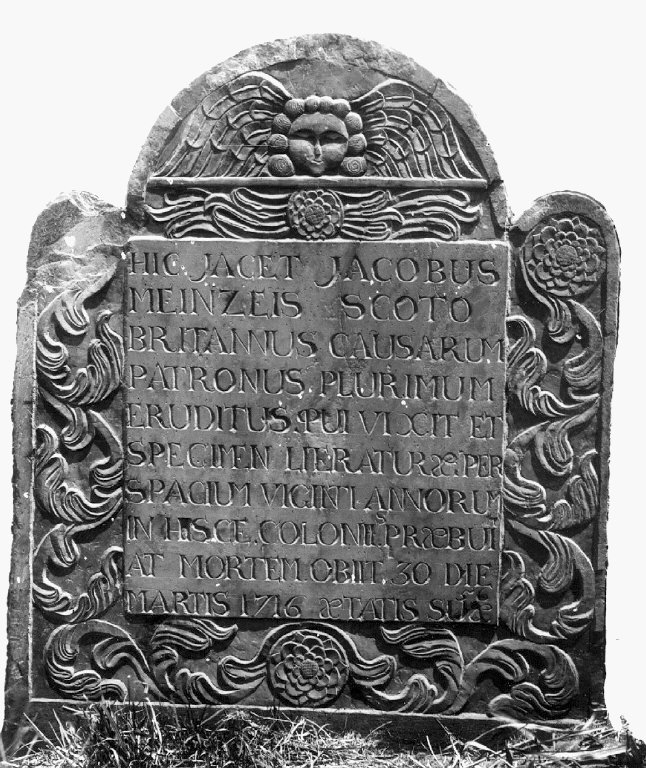 HIC JACET JACOBUS
MEINZEIS SCOTO
BRITANNUS CAUSARUM
PATRONUS PLURIMUM
ERUDITUS. PUI VIXCIT ET
SPECIMEN LITERATURÆ PER
SPACIUM VIGINTI ANNORUM
IN HISCE. COLONIIS PRÆBUI
AT MORTEM OBIIT. 30 DIE
MARTIS 1716 ÆTATIS SUÆ